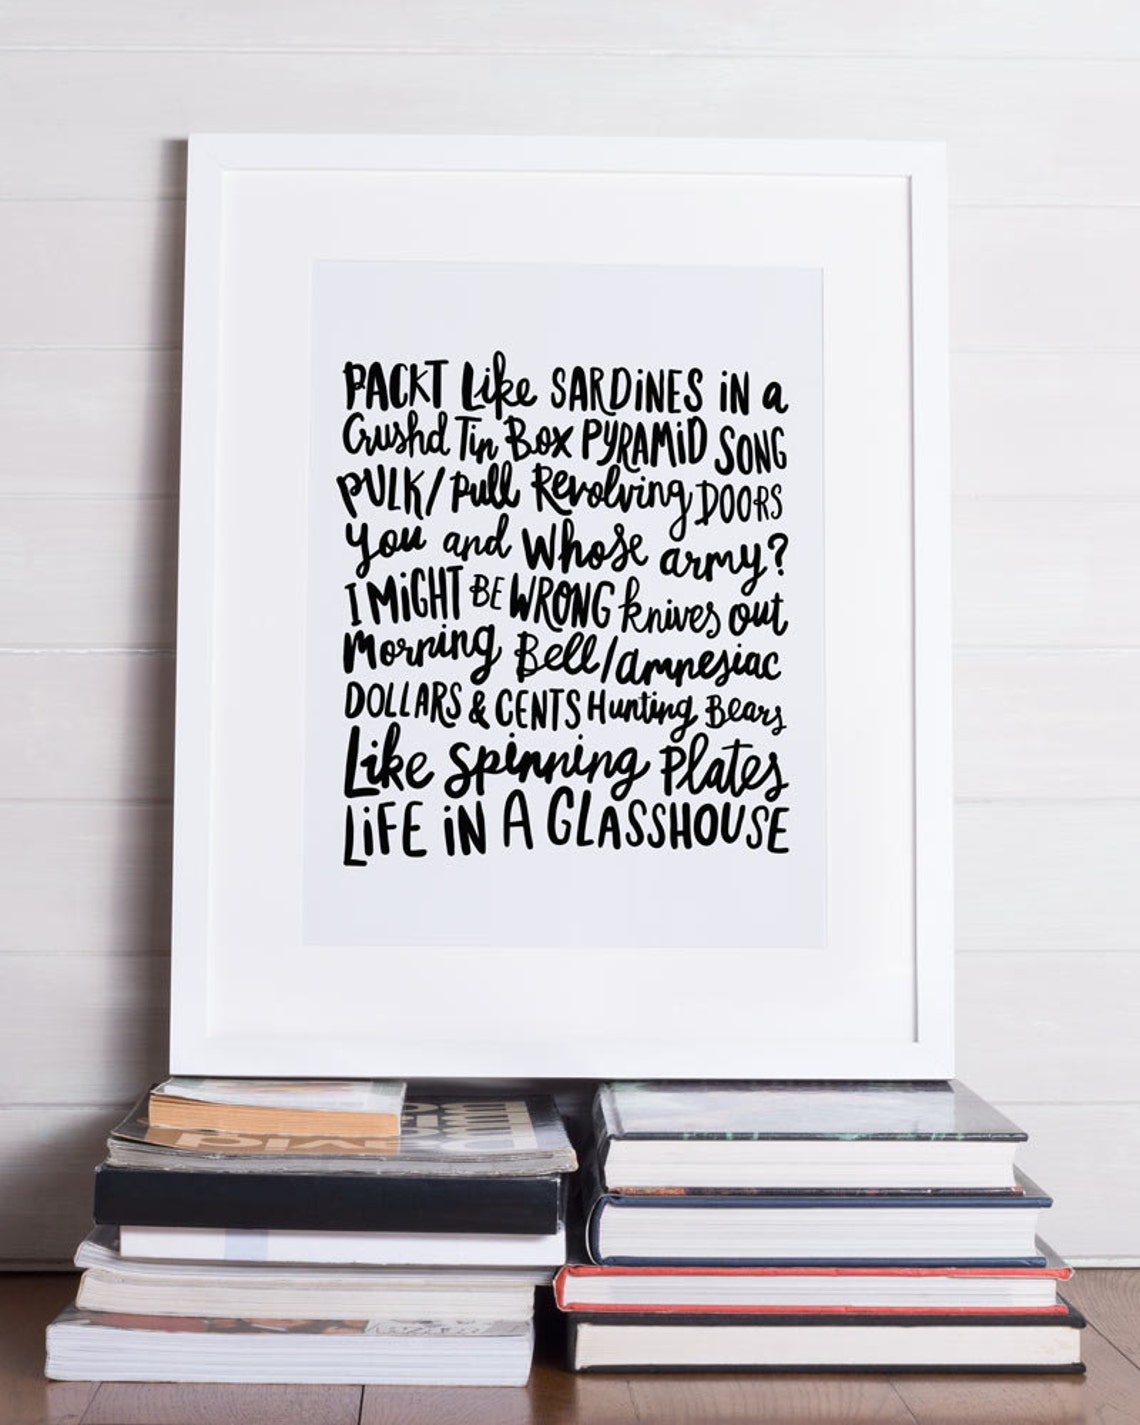 PACKT Like SARDiNES iN a
Crushd Tin Box PYRAMiD SONG
PULK/pull Revolving DOORS
You and Whose army?
I MiGHT BE WRONG knives out
Morning Bell/amnesiac
DOLLARS & CENTS Hunting Bears
Like spinning plates
LiFE iN A GLASSHOUSE